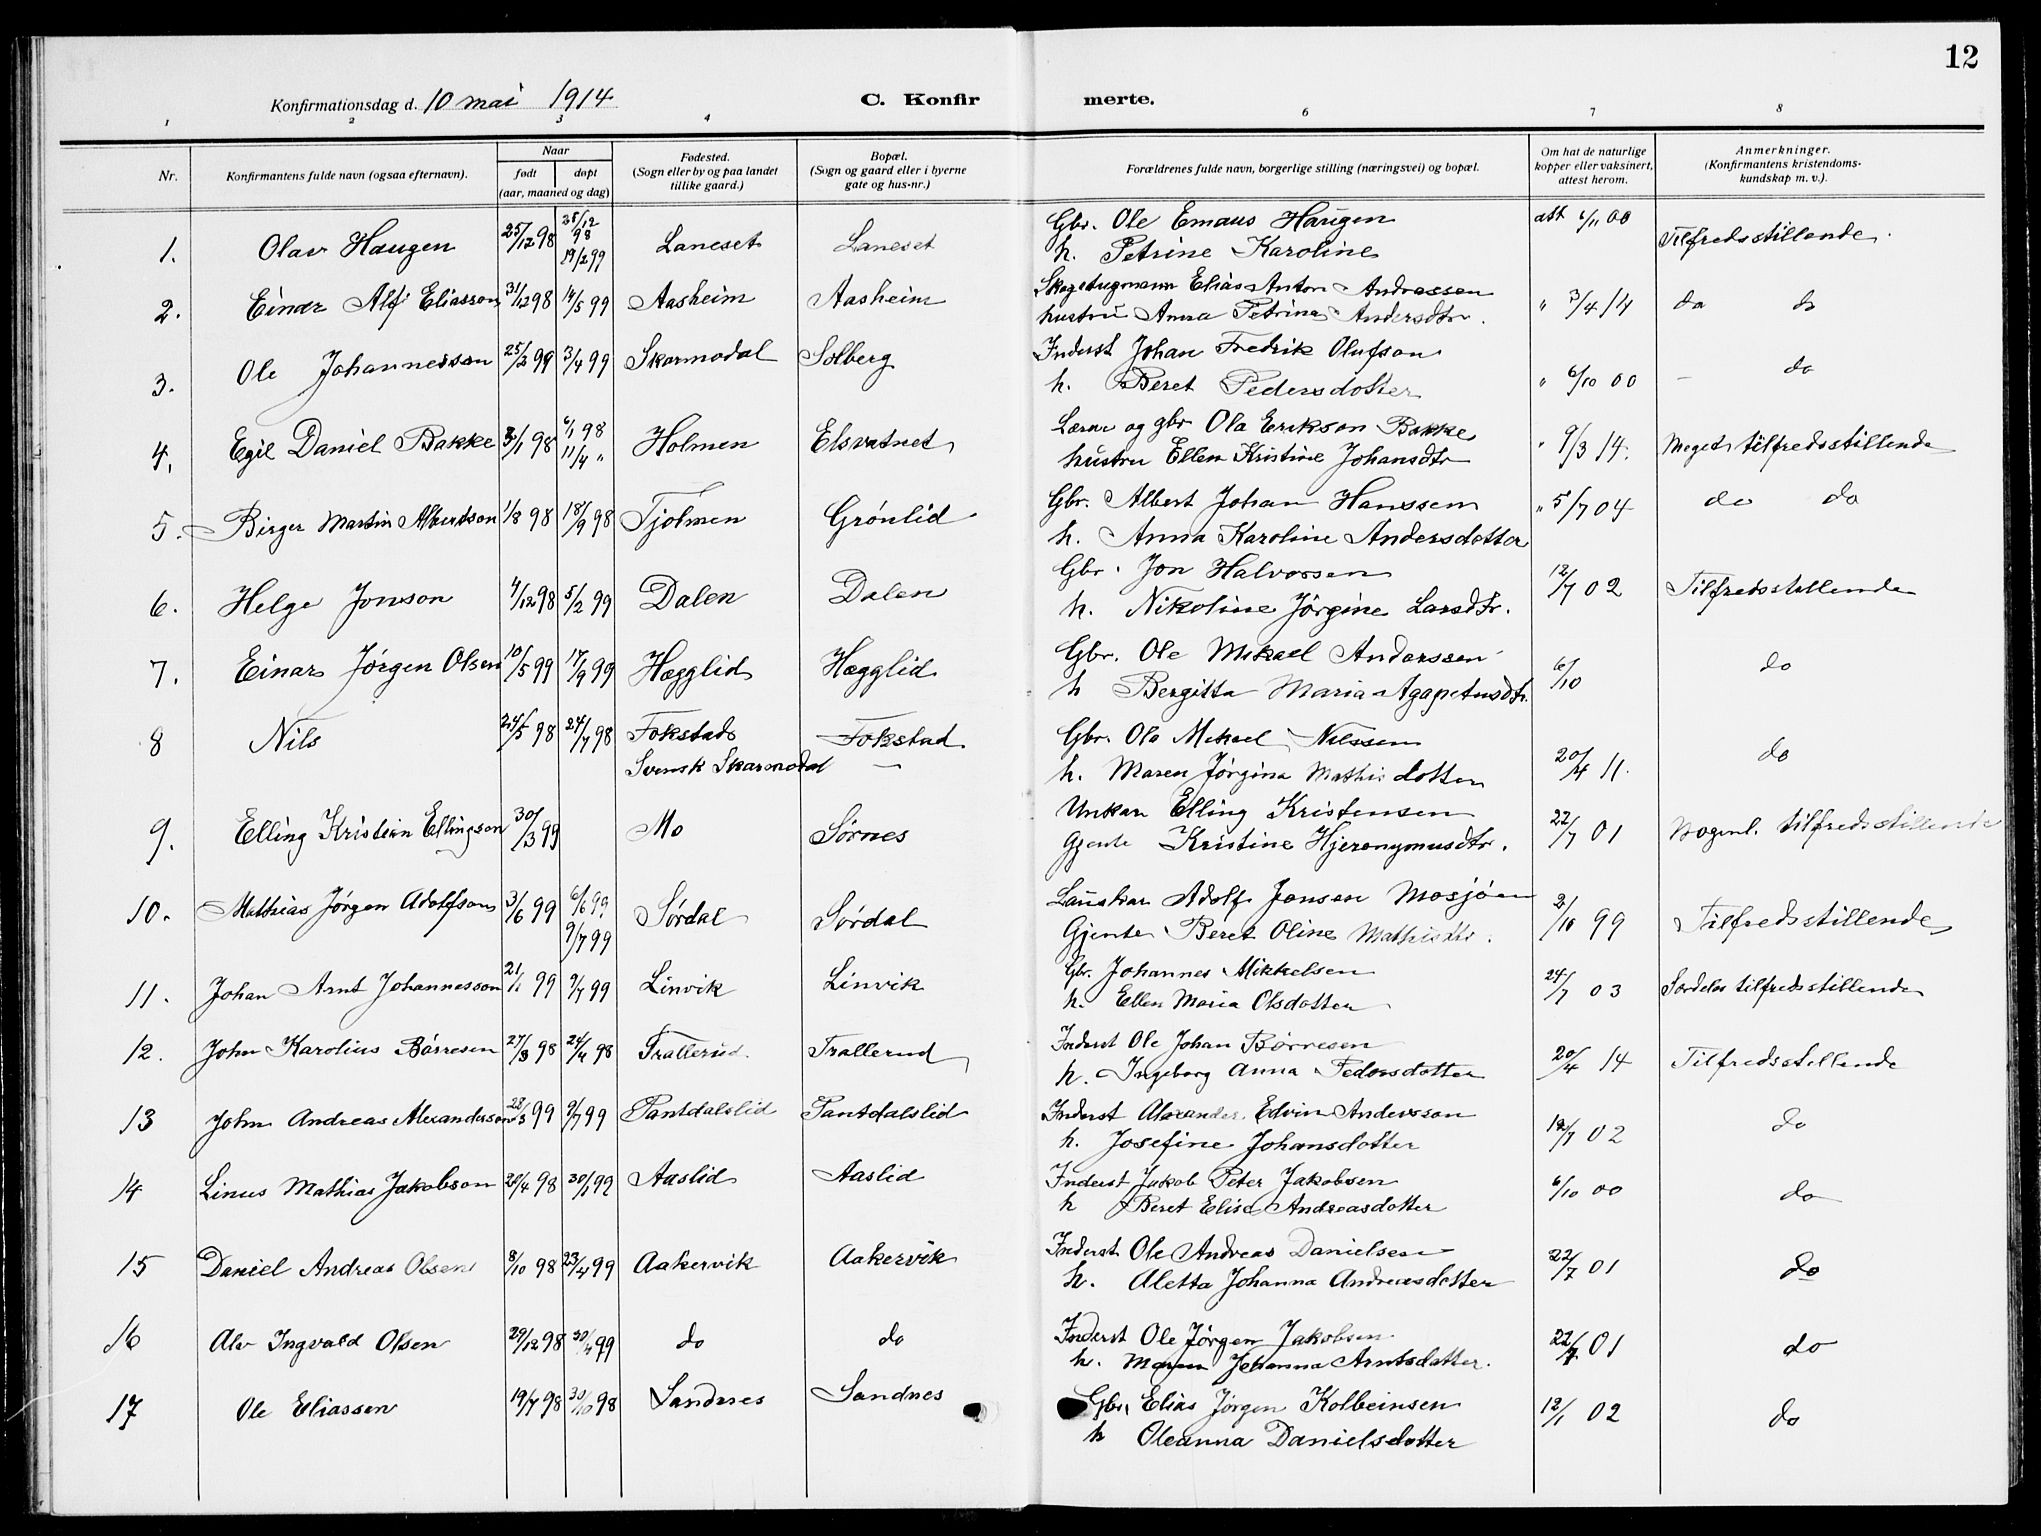 12
Konfirmationsdag d. 10 mai 1914 C. Konfirmerte.
1 2 3 4 6 7 8
Nr. Konfirmantens fulde navn (ogsaa efternavn). Naar født døpt (aar, maaned og dag) Fødested. (Sogn eller by og paa landet tillike gaard.) Bopæl. (Sogn og gaard eller i byerne gate og hus-nr.) Forældrenes fulde navn, borgerlige stilling (næringsvei) og bopæl. Om hat de naturlige kopper eller vaksinert, attest herom. Anmerkninger. (Konfirmantens kristendoms-kundskap m. v.).
1. Olav Haugen 25/12 98 25/12 98 19/2 99 Laneset Laneset Gbr. Ole Emaus Haugen att 6/11 00 Tilfredsstillende.
h. Petrine Karoline
2. Einar Alf Eliasson 31/12 98 14/5 99 Aasheim Aasheim Skogstugmann Elias Anton Andreassen " 3/4 14 do do
hustru Anna Petrina Andersdtr.
3. Ole Johannesson 25/2 99 3/4 99 Skarmodal Solberg Inderst Johan Fredrik Olufson
h. Beret Pedersdotter " 6/10 00 - do
4. Egil Daniel Bakke 3/1 98 6/1 98 11/4 " Holmen Elsvatnet Lærer og gbr Ola Erikson Bakke " 9/3 14. Meget tilfredsstillende
hustru Ellen Kristine Johansdtr
5. Birger Martin Albertson 1/8 98 18/9 98 Tjolmen Grönlid Gbr. Albert Johan Hanssen " 5/7 04 do do
h. Anna Karoline Andersdotter
6. Helge Jonson 4/12 98 5/2 99 Dalen Dalen Gbr. Jon Halvorsen 12/7 02 Tilfredsstillende
h. Nikoline Jørgine Larsdtr.
7. Einar Jørgen Olsen 10/5 99 17/9 99 Hægglid Hægglid Gbr. Ole Mikael Anderssen 6/10 do
h Bergitta Maria Agapetusdtr.
8 Nils 24/5 98 24/7 98 Fokstad Fokstad Gbr. Ole Mikael Nilssen 20/4 11. do
Svensk Skarmodal — h. Maren Jørgina Mathisdotter
9. Elling Kristian Ellingson 30/3 99 Mo Sørnes Unkar Elling Kristensen 22/7 01 Nogenl. tilfredsstillende
Gjente Kristine Hjeronymusdtr.
10. Mathias Jørgen Adolfson 3/6 99 6/6 99 9/7 99 Sørdal Sørdal Adolf Jonsen Mosjøen 2/10 99 Tilfredsstillende
Gjente Beret Oline Mathisdtr.
11. Johan Arnt Johannesson 21/1 99 9/7 99 Linvik Linvik Gbr. Johannes Mikkelsen 24/7 03 Særdeles tilfredsstillende
h. Ellen Maria Olsdotter
12. John Karolius Börresen 27/3 98 24/4 98 Trallerud. Trallerud Inderst Ole Johan Børresen 20/4 14 Tilfredsstillende
h. Ingeborg Anna Pedersdotter
13 John Andreas Alexanderson 28/3 99 9/7 99 Pantdalslid Pantdalslid Inderst Alexander Edvin Andersson 12/7 02 do
h. Josefine Johansdotter
14 Linus Mathias Jakobson 20/4 98 30/1 99 Aaslid Aaslid Inderst Jakob Peter Jakobsen 6/10 00 do
h Beret Elise Andreasdotter
15 Daniel Andreas Olsen 8/10 98 23/4 99 Aakervik Aakervik Inderst Ole Andreas Danielsen 22/7 01 do
h. Aletta Johanna Andreasdotter
16 Alv Ingvald Olsen 29/12 98 30/4 99 do do Inderst Ole Jørgen Jakobsen 22/7 01 do
h. Maren Johanna Arntsdatter.
17 Ole Eliassen 19/7 98 30/10 98 Sandnes Sandnes Gbr. Elias Jørgen Kolbeinsen 12/1 02 do
h Oleanna Danielsdotter